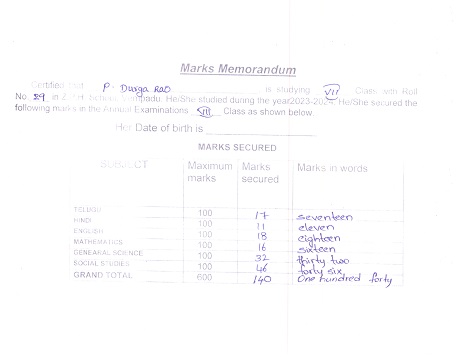 Marks Memorandum
Certified that P. Durga Rao is studying VII Class with Roll
No. 29 in Z.P.H. He/She studied during the year2023-2024. He/She secured the
following marks in the Annual Examinations VII Class as shown below.
Her Date of birth is
MARKS SECURED
SUBJECT Maximum marks Marks secured Marks in words
TELUGU 100 17 seventeen
HINDI 100 11 eleven
ENGLISH 100 18 eighteen
MATHEMATICS 100 16 sixteen
GENEAKAL SCIENCE 100 32 thirty two
SOCIAL STUDIES 100 46 forty six
GRAND TOTAL 600 140 One hundred forty